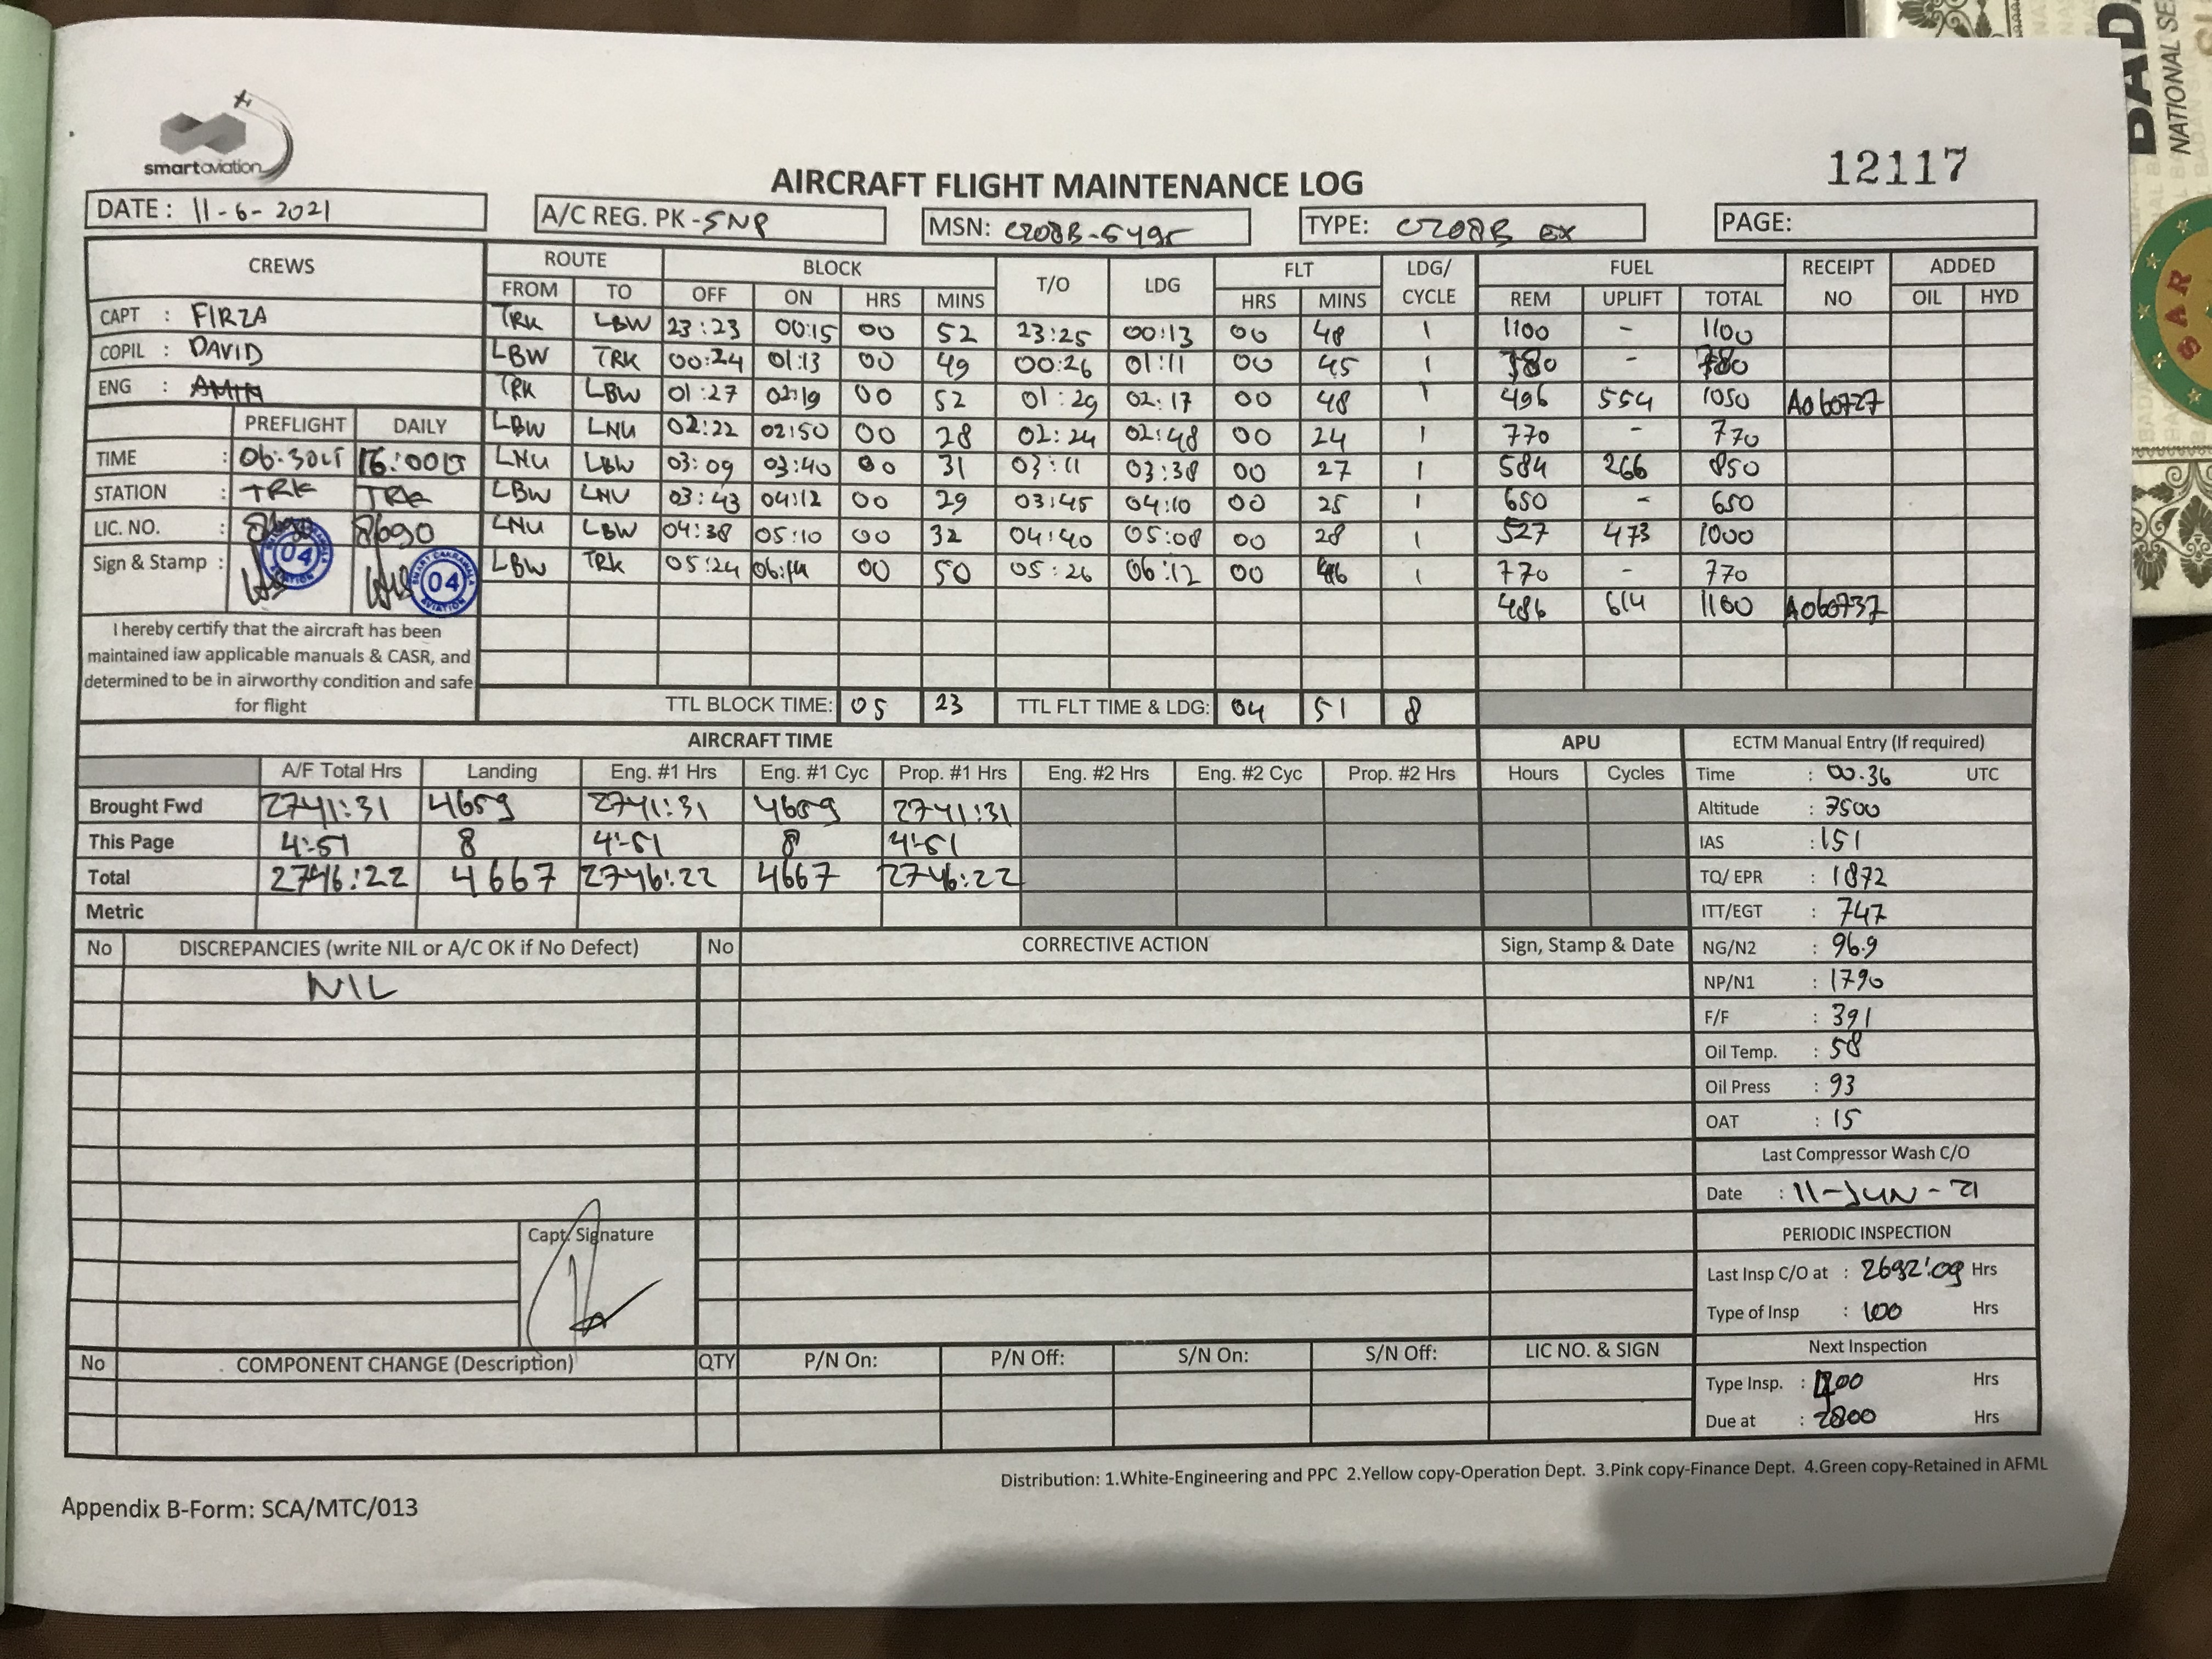 smartaviation
12117
AIRCRAFT FLIGHT MAINTENANCE LOG
DATE : 11-6-2021
A/C REG. PK-SNP
MSN: C208B-5495
TYPE: C208B EX
PAGE:
CREWS ROUTE BLOCK T/O LDG FLT LDG/ CYCLE FUEL RECEIPT NO ADDED
FROM TO OFF ON HRS MINS HRS MINS REM UPLIFT TOTAL OIL HYD
CAPT : FIRZA
COPIL : DAVID
ENG : AMIN
TRK LBW 23:23 00:15 00 52 23:25 00:13 00 48 1 1100 - 1100
LBW TRK 00:24 01:13 00 49 00:26 01:11 00 45 1 780 - 780
TRK LBW 01:27 02:19 00 52 01:29 02:17 00 48 1 496 554 1050 A060727
LBW LNU 02:22 02:50 00 28 02:24 02:48 00 24 1 770 - 770
LNU LBW 03:09 03:40 00 31 03:11 03:38 00 27 1 584 266 850
LBW LNU 03:43 04:12 00 29 03:45 04:10 00 25 1 650 - 650
LNU LBW 04:38 05:10 00 32 04:40 05:08 00 28 1 527 473 1000
LBW TRK 05:24 06:14 00 50 05:26 06:12 00 46 1 770 - 770
486 614 1100 A060737
PREFLIGHT DAILY
TIME : 06:30LT 16:00LT
STATION : TRK TRK
LIC. NO. : 8690 8690
Sign & Stamp :
04
AVIATION
SMART CAKRAWALA
04
AVIATION
I hereby certify that the aircraft has been
maintained iaw applicable manuals & CASR, and
determined to be in airworthy condition and safe
for flight
TTL BLOCK TIME: 05 23 TTL FLT TIME & LDG: 04 51 8
AIRCRAFT TIME APU
A/F Total Hrs Landing Eng. #1 Hrs Eng. #1 Cyc Prop. #1 Hrs Eng. #2 Hrs Eng. #2 Cyc Prop. #2 Hrs Hours Cycles
Brought Fwd 2741:31 4659 2741:31 4659 2741:31
This Page 4:51 8 4:51 8 4:51
Total 2746:22 4667 2746:22 4667 2746:22
Metric
ECTM Manual Entry (If required)
Time : 00.36 UTC
Altitude : 7500
IAS : 151
TQ/ EPR : 1872
ITT/EGT : 747
NG/N2 : 96.9
NP/N1 : 1790
F/F : 391
Oil Temp. : 58
Oil Press : 93
OAT : 15
Last Compressor Wash C/O
Date : 11-JUN-21
PERIODIC INSPECTION
Last Insp C/O at : 2692:09 Hrs
Type of Insp : 100 Hrs
Next Inspection
Type Insp. : 100 Hrs
Due at : 2800 Hrs
No DISCREPANCIES (write NIL or A/C OK if No Defect) No CORRECTIVE ACTION Sign, Stamp & Date
NIL
Capt. Signature
No COMPONENT CHANGE (Description) QTY P/N On: P/N Off: S/N On: S/N Off: LIC NO. & SIGN
Distribution: 1.White-Engineering and PPC 2.Yellow copy-Operation Dept. 3.Pink copy-Finance Dept. 4.Green copy-Retained in AFML
Appendix B-Form: SCA/MTC/013
SAR